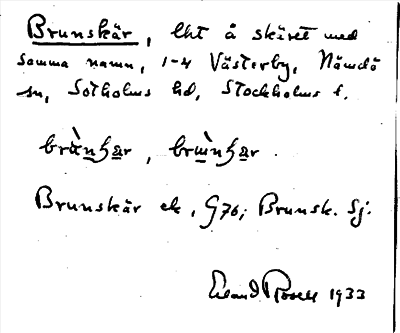 Brunskär, lht å skäret med
samma namn, 1-4 Västerby, Nämdö
sn, Sotholms hd, Stockholms l.
Brunskär ek, G76; Brunsk. Sj.
Erland Rosell 1933